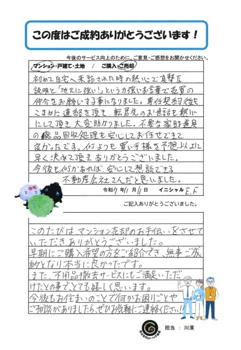 この度はご成約ありがとうございます！
今後のサービス向上のために、ご意見・ご感想をお聞かせください。
マンション・戸建て・土地 / ご購入・ご売却
初めて自宅へ来訪された時の熱心で真摯な
説明と「地元に強い」という力強いお言葉で売買の
仲介をお願いする事になりました。専任契約後も
こまめに連絡を頂き
にして頂き大変助かりました。不要な家財道具
の処理も安心してお任せできて
良かったです。何よりも買い手様を予想以上に
早く決めて頂きありがとうございました。
今後も何かあれば、安心して相談できる
不動産会社さんだと思いました。
令和7年11月11日 イニシャル
ご記入ありがとうございました。
このたびはマンション売却のお手伝いをさせて
いただきありがとうございました。
早期にご購入希望の方をご紹介でき、無事ご成
約となり本当に良かったです。
また、不用品撤去サービスにもご満足いただ
けたとの事でとても嬉しく思います。
今後もお住まいのことで何かお困りごとや
ご相談がありましたら、ぜひお気軽にご連絡ください!
担当 : 川濱